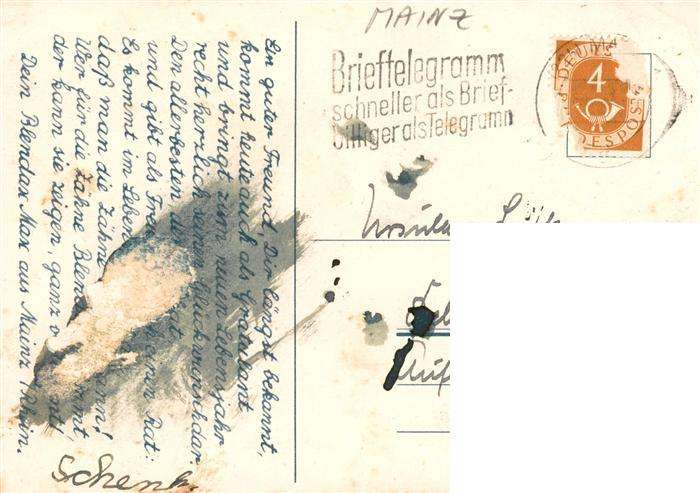 MAINZ
Brieftelegramm
schneller als Brief-
billiger als Telegramm
DEUTSCHE
BUNDESPOST
4
Ein guter Freund, Dir längst bekannt,
kommt heute auch als Gratulant
und bringt zum neuen Lebensjahr
recht herzlich seinen Glückwunsch dar.
Den allerbesten
und gibt als Fre Rat:
Es kommt im Leben
daß man die Zähne kann!
Wer für die Zähne Blend
der kann sie zeigen, ganz
Dein Blendax Max aus Mainz / Rhein.
Schenk
Ursula